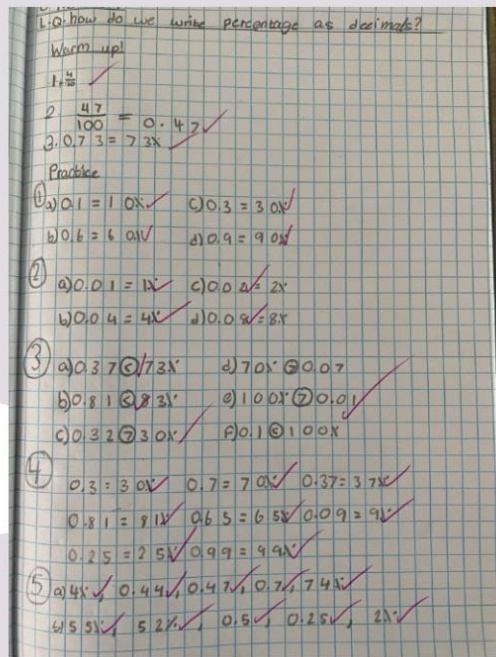 L.Q. how do we write percentage as decimals?
Warm up!
2. 47/100 = 0.47
3. 0.73 = 73%
Practice
① a) 0.1 = 10% c) 0.3 = 30%
b) 0.6 = 60% d) 0.9 = 90%
② a) 0.01 = 1% c) 0.02 = 2%
b) 0.04 = 4% d) 0.08 = 8%
③ a) 0.37 < 73% d) 70% > 0.07
b) 0.81 < 83% e) 100% > 0.01
c) 0.32 > 30% f) 0.1 < 100%
④ 0.3 = 30% 0.7 = 70% 0.37 = 37%
0.81 = 81% 0.65 = 65% 0.09 = 9%
0.25 = 25% 0.99 = 99%
⑤ a) 4%, 0.44, 0.47, 0.7, 74%
b) 55%, 52%, 0.5, 0.25, 2%